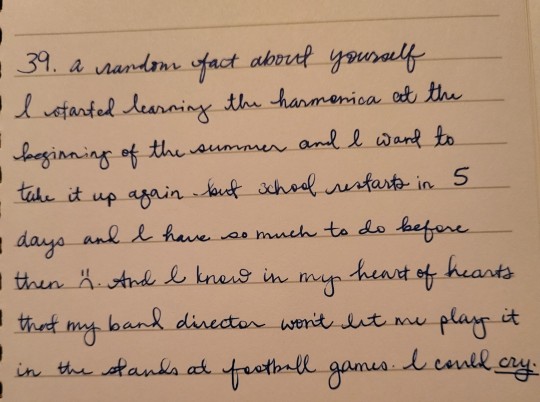 39. a random fact about yourself
I started learning the harmonica at the
beginning of the summer and I want to
take it up again but school restarts in 5
days and I have so much to do before
then :(. And I know in my heart of hearts
that my band director won't let me play it
in the stands at football games. I could cry.